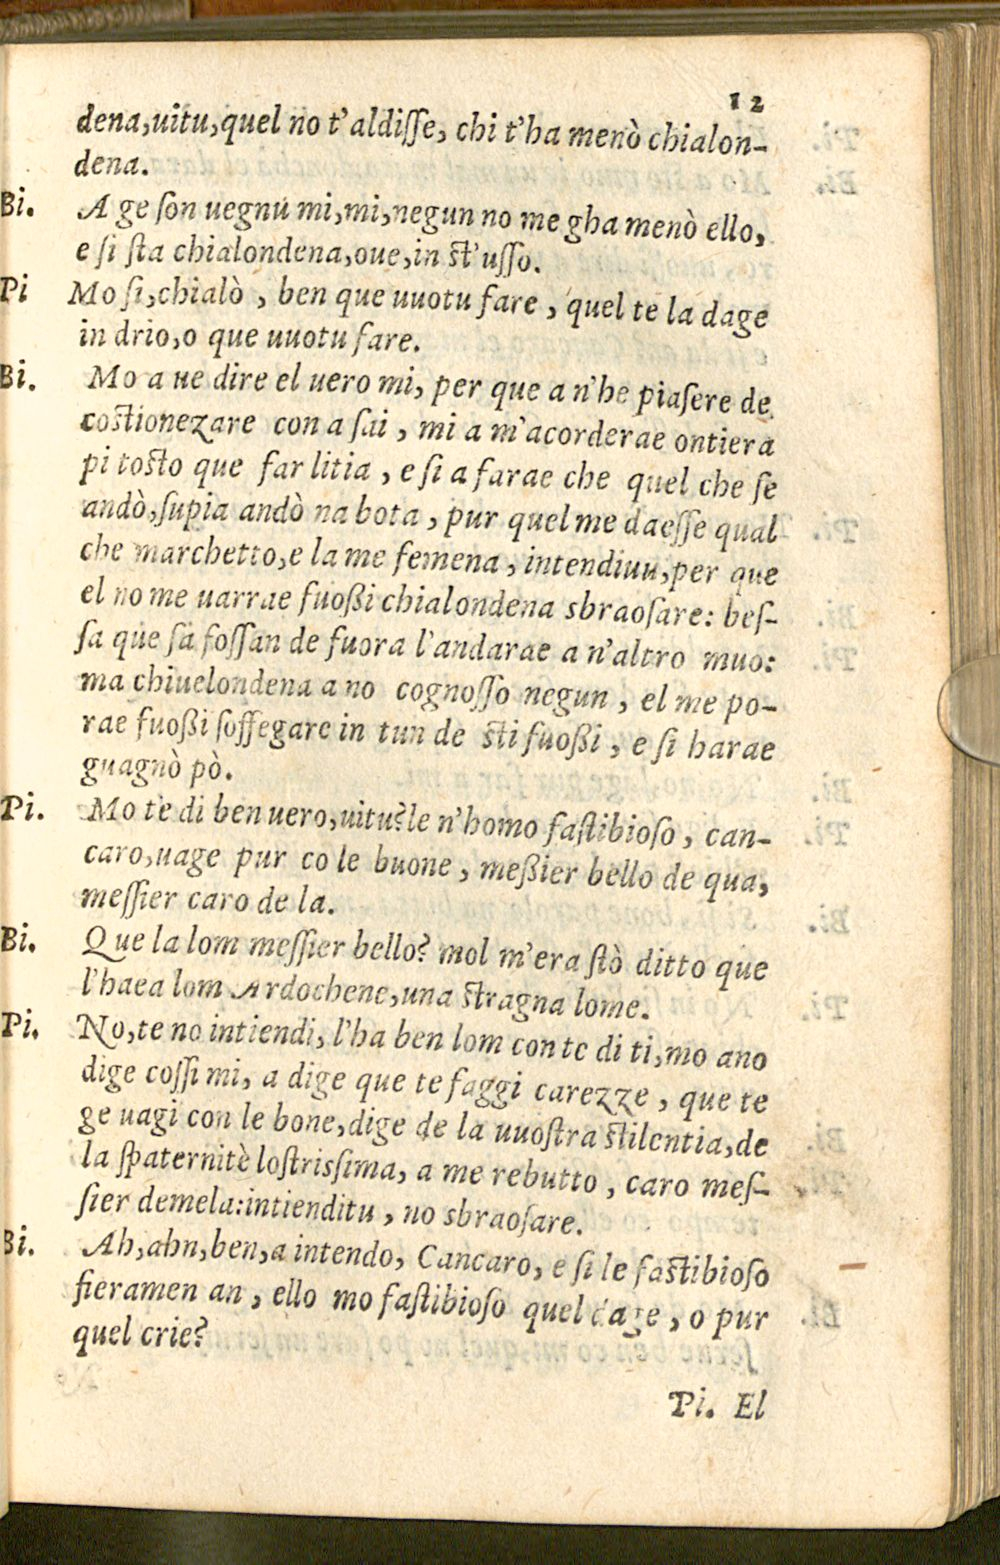 12
dena,uitu,quel no t'aldiſſe, chi t'ha menò chialon-
dena.
Bi. A ge ſon uegnú mi,mi,negun no me gha menò ello,
e ſi ſta chialondena,oue,in st'uſſo.
Pi Mo ſi,chialò , ben que uuotu fare , quel te la dage
in drio,o que uuotu fare.
Bi. Mo a ue dire el uero mi, per que a n'he piaſere de
costionezare con a ſai , mi a m'acorderae ontiera
pi tosto que far litia , e ſi a farae che quel che ſe
andò,ſupia andò na bota , pur quel me daeſſe qual
che marchetto,e la me femena , intendiuu,per que
el no me uarrae fuoßi chialondena sbraoſare: beſ-
ſa que ſa foſſan de fuora l'andarae a n'altro muo:
ma chiuelondena a no cognoſſo negun , el me po-
rae fuoßi ſoffegare in tun de sti fuoßi , e ſi harae
guagnò pò.
Pi. Mo te di ben uero,uitu?le n'homo faſtibioſo , can-
caro,uage pur co le buone , meßier bello de qua,
meſſier caro de la.
Bi. Que la lom meſſier bello? mol m'era ſtò ditto que
l'haea lom Ardochene,una stragna lome.
Pi. No,te no intiendi, l'ha ben lom con te di ti,mo ano
dige coſſi mi, a dige que te faggi carezze , que te
ge uagi con le bone,dige de la uuoſtra stilentia,de
la ſpaternitè loſtrisſima, a me rebutto , caro meſ-
ſier demela:intienditu , no sbraoſare.
Bi. Ah,ahn,ben,a intendo, Cancaro, e ſi le fastibioſo
fieramen an , ello mo faſtibioſo quel dage , o pur
quel crie?
Pi. El